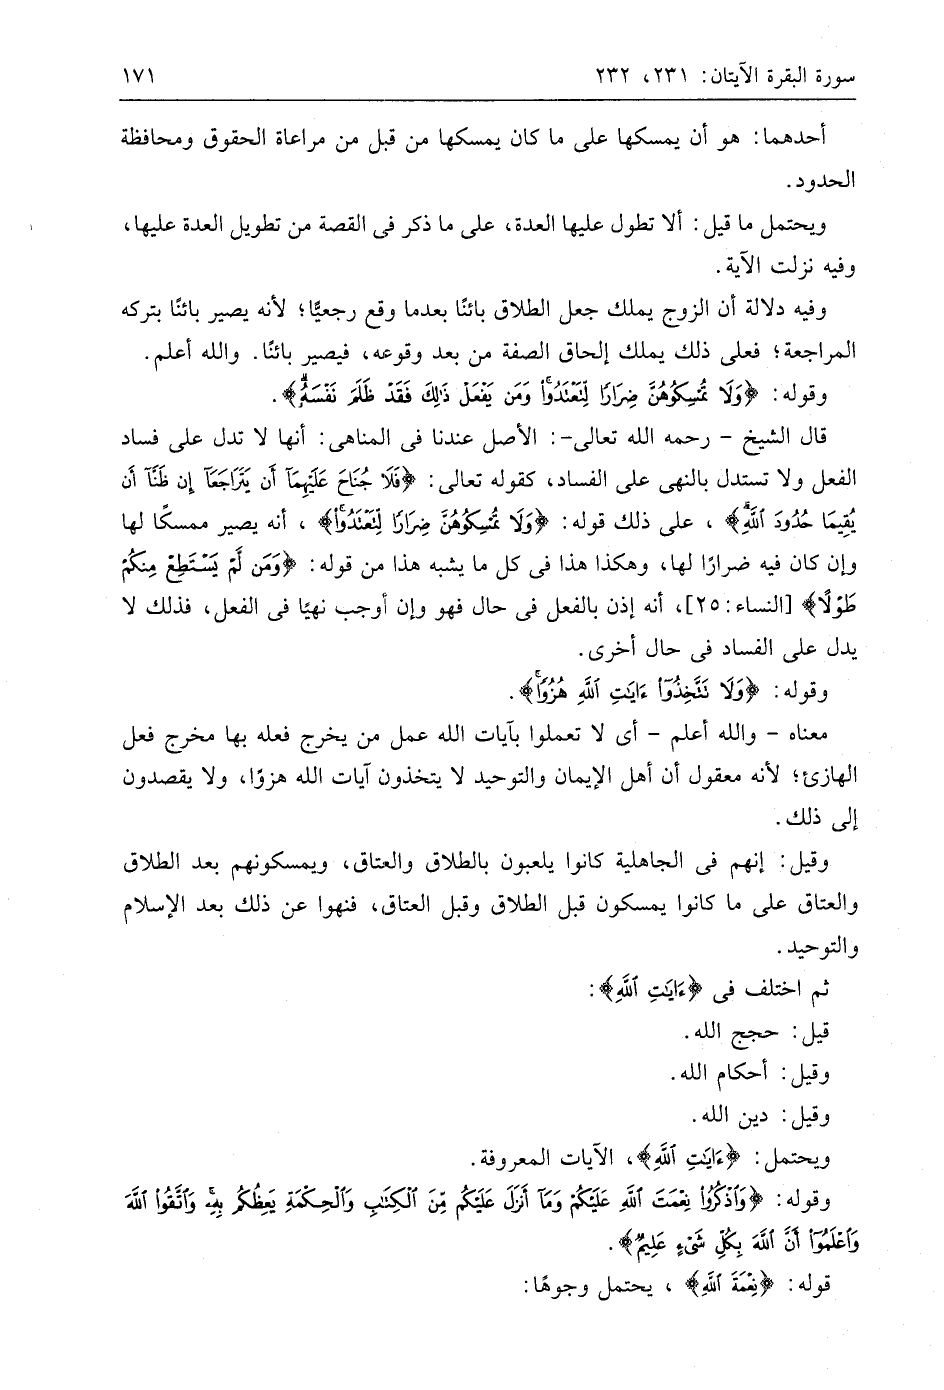 سورة البقرة الآيتان: ٢٣١، ٢٣٢ ١٧١
أحدهما: هو أن يمسكها على ما كان يمسكها من قبل من مراعاة الحقوق ومحافظة
الحدود.
ويحتمل ما قيل: ألا تطول عليها العدة، على ما ذكر فى القصة من تطويل العدة عليها،
وفيه نزلت الآية.
وفيه دلالة أن الزوج يملك جعل الطلاق بائنًا بعدما وقع رجعيًّا؛ لأنه يصير بائنًا بتركه
المراجعة؛ فعلى ذلك يملك إلحاق الصفة من بعد وقوعه، فيصير بائنًا. والله أعلم.
وقوله: ﴿وَلَا تُمْسِكُوهُنَّ ضِرَارًا لِّتَعْتَدُواْۚ وَمَن يَفْعَلْ ذَٰلِكَ فَقَدْ ظَلَمَ نَفْسَهُۥۚ﴾.
قال الشيخ - رحمه الله تعالى-: الأصل عندنا فى المناهى: أنها لا تدل على فساد
الفعل ولا تستدل بالنهى على الفساد، كقوله تعالى: ﴿فَلَا جُنَاحَ عَلَيْهِمَآ أَن يَتَرَاجَعَآ إِن ظَنَّآ أَن
يُقِيمَا حُدُودَ ٱللَّهِۗ﴾ ، على ذلك قوله: ﴿وَلَا تُمْسِكُوهُنَّ ضِرَارًا لِّتَعْتَدُواْۚ﴾ ، أنه يصير ممسكًا لها
وإن كان فيه ضرارًا لها، وهكذا هذا فى كل ما يشبه هذا من قوله: ﴿وَمَن لَّمْ يَسْتَطِعْ مِنكُمْ
طَوْلًا﴾ [النساء: ٢٥]، أنه إذن بالفعل فى حال فهو وإن أوجب نهيًا فى الفعل، فذلك لا
يدل على الفساد فى حال أخرى.
وقوله: ﴿وَلَا تَتَّخِذُوٓاْ ءَايَٰتِ ٱللَّهِ هُزُوًاۚ﴾.
معناه - والله أعلم - أى لا تعملوا بآيات الله عمل من يخرج فعله بها مخرج فعل
الهازئ؛ لأنه معقول أن أهل الإيمان والتوحيد لا يتخذون آيات الله هزوًا، ولا يقصدون
إلى ذلك.
وقيل: إنهم فى الجاهلية كانوا يلعبون بالطلاق والعتاق، ويمسكونهم بعد الطلاق
والعتاق على ما كانوا يمسكون قبل الطلاق وقبل العتاق، فنهوا عن ذلك بعد الإسلام
والتوحيد.
ثم اختلف فى ﴿ءَايَٰتِ ٱللَّهِ﴾:
قيل: حجج الله.
وقيل: أحكام الله.
وقيل: دين الله.
ويحتمل: ﴿ءَايَٰتِ ٱللَّهِ﴾، الآيات المعروفة.
وقوله: ﴿وَٱذْكُرُواْ نِعْمَتَ ٱللَّهِ عَلَيْكُمْ وَمَآ أَنزَلَ عَلَيْكُم مِّنَ ٱلْكِتَٰبِ وَٱلْحِكْمَةِ يَعِظُكُم بِهِۦۚ وَٱتَّقُواْ ٱللَّهَ
وَٱعْلَمُوٓاْ أَنَّ ٱللَّهَ بِكُلِّ شَىْءٍ عَلِيمٌ﴾.
قوله: ﴿نِعْمَةَ ٱللَّهِ﴾ ، يحتمل وجوهًا: